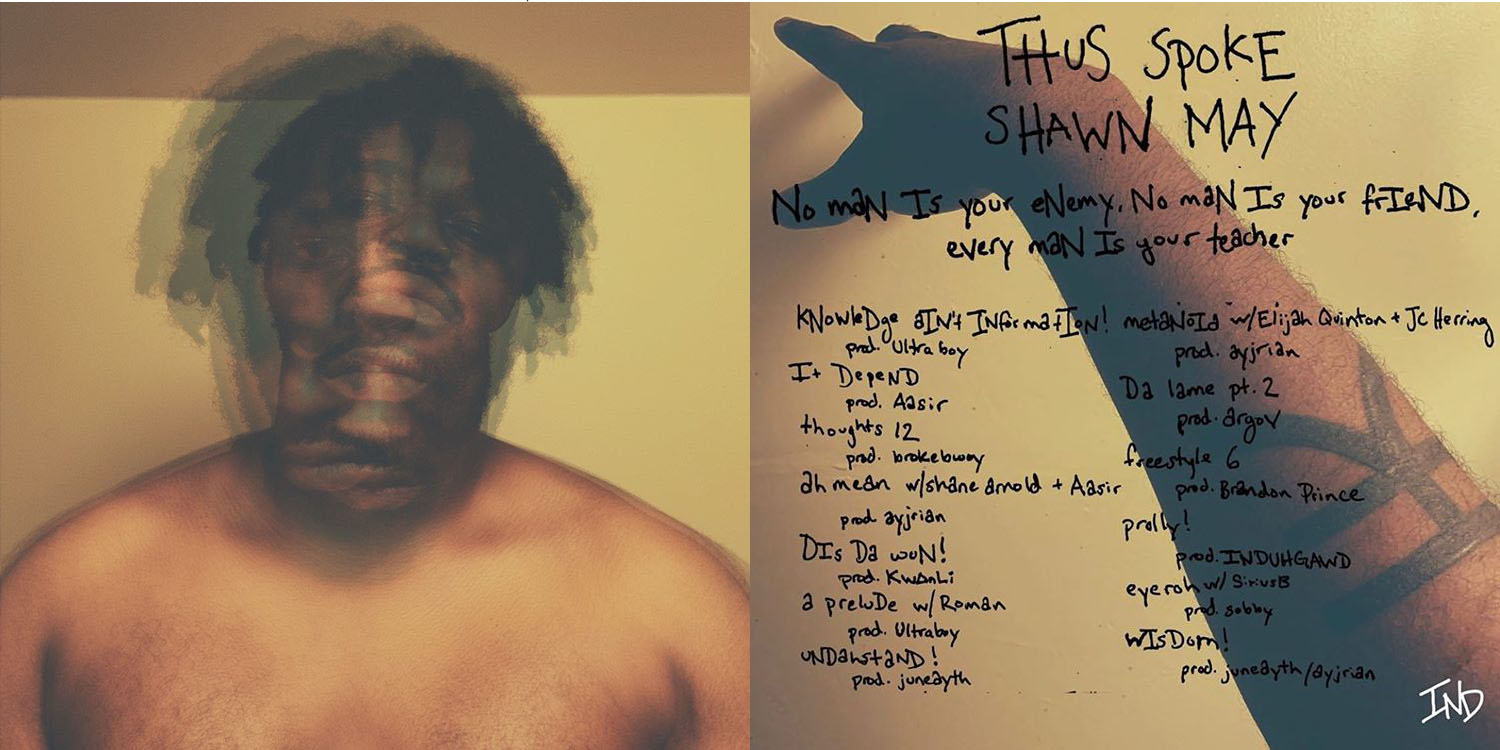 THUS SPOKE
SHAWN MAY
No maN Is your eNemy. No maN Is your frIeND,
every maN Is your teacher
kNowleDge aIN't INformatIoN!
prod. Ultra boy
It DepeND
prod. Aasir
thoughts 12
prod. brokebwoy
ah mean w/shane arnold + Aasir
prod ayjrian
DIs Da woN!
prod. KwanLi
a preluDe w/ Roman
prod. Ultraboy
uNDahstaND!
prod. juneayth
metaNoIa w/Elijah Quinton + Jc Herring
prod. ayjrian
Da lame pt. 2
prod. argov
freestyle 6
prod. Brandon Prince
prolly!
prod. INDUHGAWD
eyeroh w/ SiriusB
prod. sobby
wIsDom!
prod. juneayth/ayjrian
IND